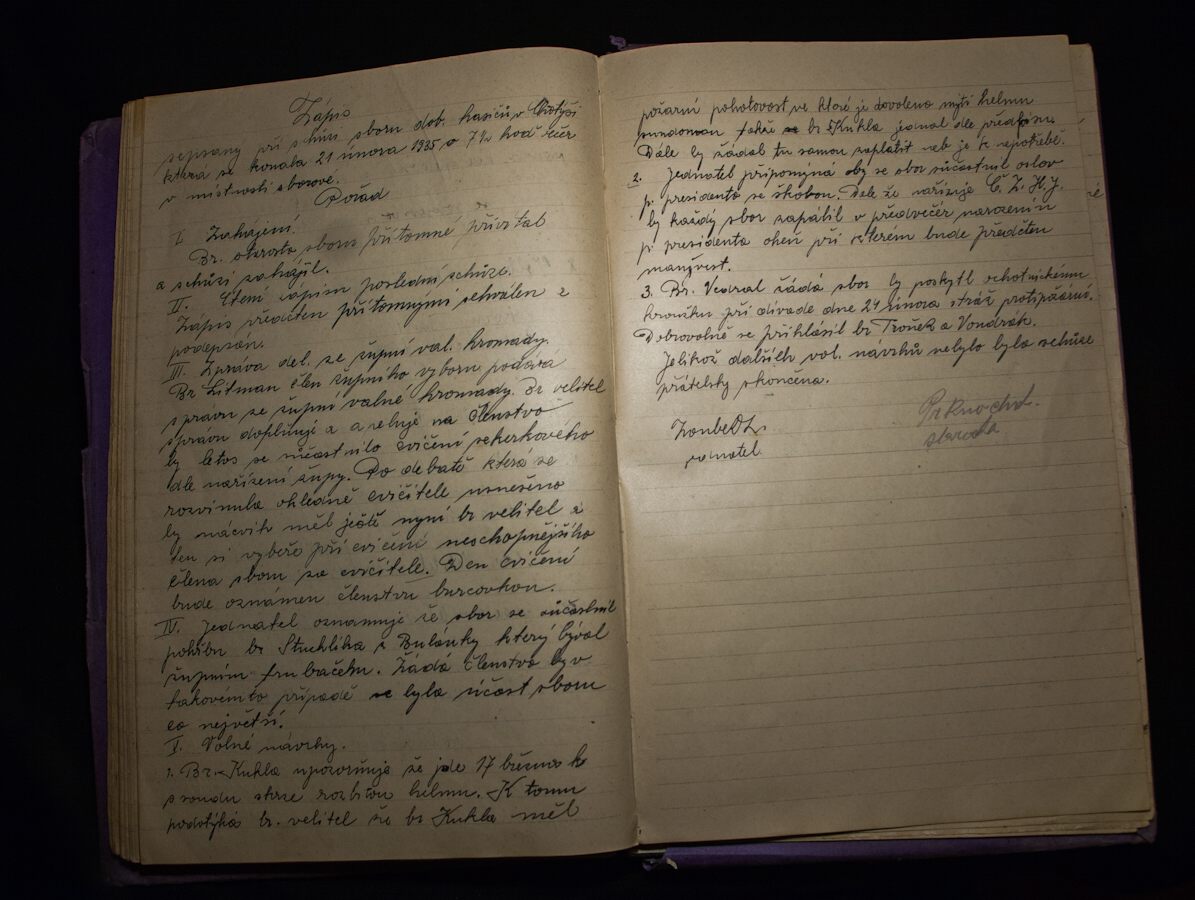 Zápis
sepsaný při schůzi sboru dob. hasičů v Chotýši
která se konala 21 února 1935 o 7½ hod več
v místnosti sborové.
Pořad
I Zahájení.
Br. starosta sboru přítomné přivítal
a schůzi zahájil.
II. Čtení zápisu poslední schůze.
Zápis předčten přítomnými schválen a
podepsán.
III. Zpráva del. ze župní val. hromady.
Br Litman člen župního vyboru podává
zprávu ze župní valné hromady. Br velitel
zprávu doplňuje a apeluje na členstvo
by letos se súčastnilo cvičení sekerkového
dle nařízení župy. Po debatě která se
rozvinula ohledně cvičitele usnešeno
by nácvik měl ještě nyní br velitel a
ten si vybeře při cvičení neschopnějšího
člena sboru za cvičitele. Den cvičení
bude oznámen členstvu burcovkou.
IV. Jednatel oznamuje že sbor se súčastnil
pohřbu br Stuchlíka z Bulánky který býval
župním trubačem. Žádá členstvo by v
takovémto případě byla účast sboru
co největší.
V. Volné návrhy.
1. Br. Kukla upozorňuje že jde 17 března k
soudu skrze rozbitou helmu. K tomu
podotýká br. velitel že br Kukla měl
požární pohotovost ve které je dovoleno mýti helmu
sundanou takže br Kukla jednal dle předpisu.
Dále by žádal tu samou zaplatit neb je k nepotřebě.
2. Jednatel připomýná aby se sbor súčastnil oslav
p. presidenta se školou. Dále že nařizuje Č. Z. H. J.
by každý sbor zapálil v předvečér narozenin
p. presidenta oheň při kterém bude předčten
manyfest.
3. Br. Vedral žádá sbor by poskytl ochotnickému
kroužku při divadle dne 24 února stráž protipožární.
Dobrovolně se přihlásil br Troněk a Vondrák.
Jelikož dalších vol. návrhů nebylo byla schůze
přátelsky skončena.
jednatel
starosta